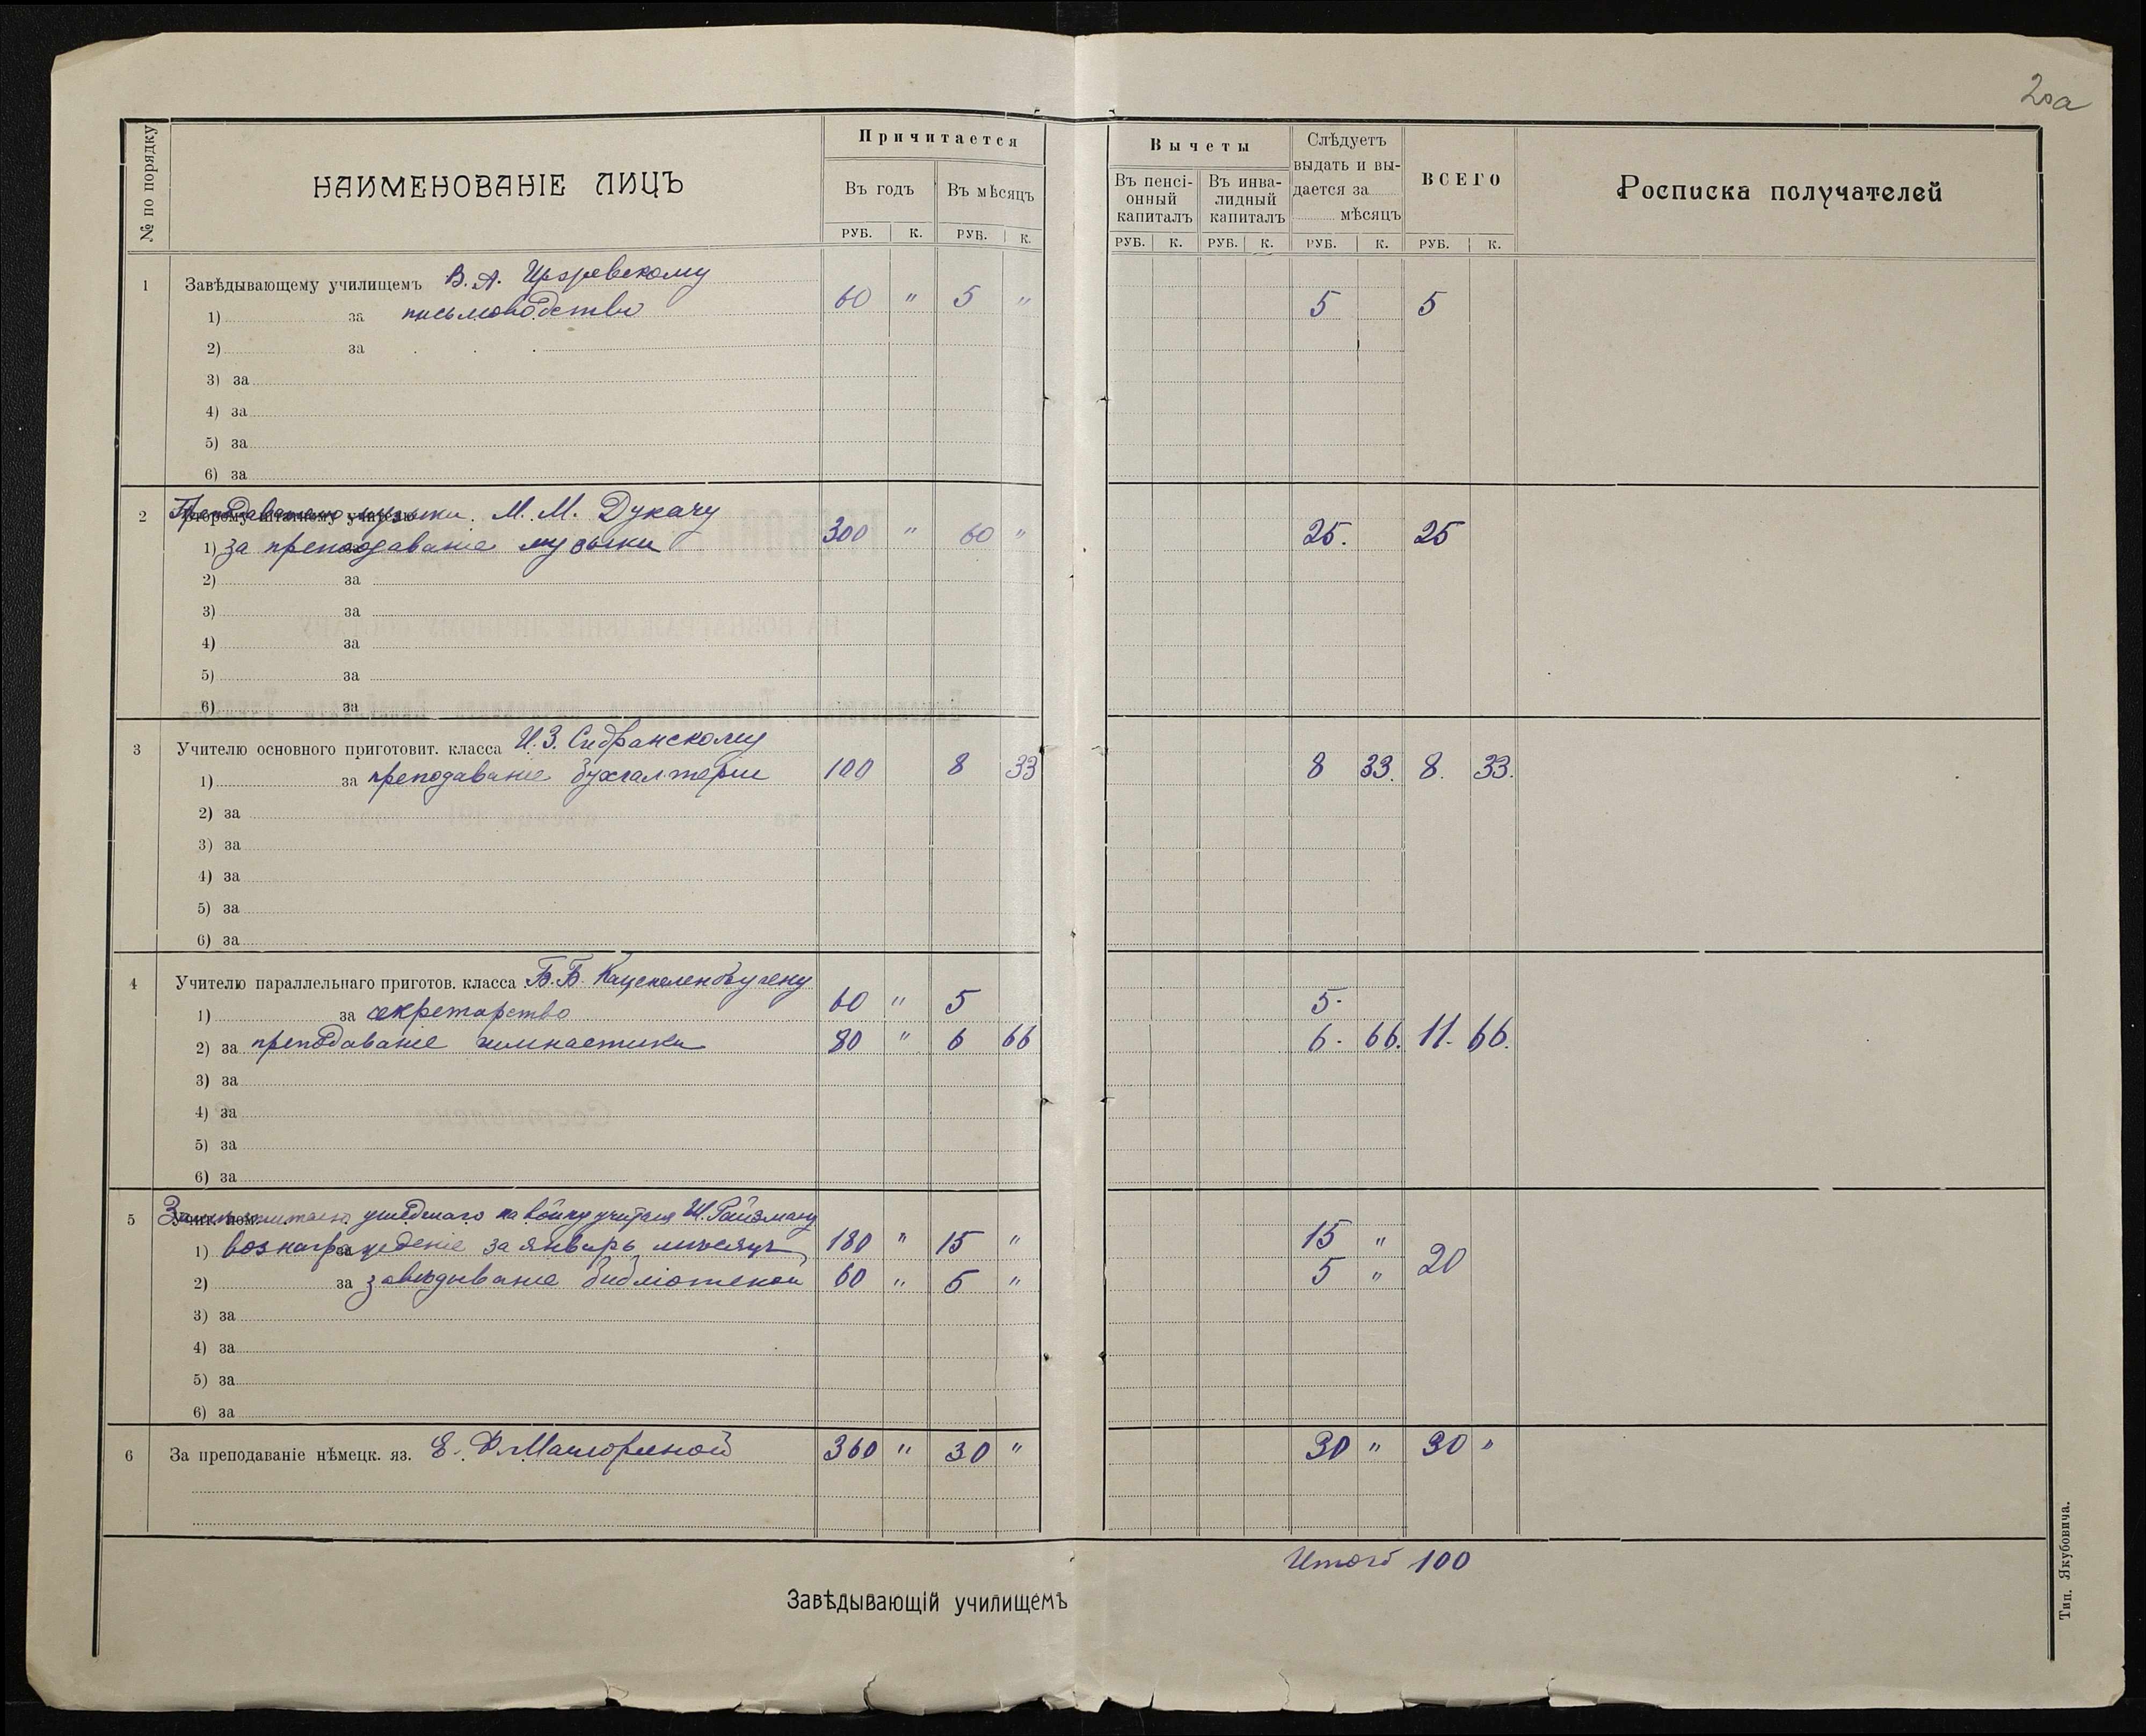 20а
№ по порядку
НАИМЕНОВАНІЕ ЛИЦЪ
Причитается
Въ годъ
Въ мѣсяцъ
РУБ. К. РУБ. К.
Вычеты
Въ пенсі-
онный
капиталъ
Въ инва-
лидный
капиталъ
Слѣдуетъ
выдать и вы-
дается за
мѣсяцъ
ВСЕГО
Росписка получателей
РУБ. К. РУБ. К. РУБ. К. РУБ. К.
1 Завѣдывающему училищемъ В. А.
1) за письмоводство 60 " 5 " 5 5
2) за
3) за
4) за
5) за
6) за
2 Второму штатному учителю
Преподавателю музыки М. М. Дукачу
1) за преподаваніе музыки 300 " 60 " 25. 25
2) за
3) за
4) за
5) за
6) за
3 Учителю основного приготовит. класса И. З. Сидранскому
1) за преподаваніе бухгалтеріи 100 8 33 8 33. 8. 33.
2) за
3) за
4) за
5) за
6) за
4 Учителю параллельнаго приготов. класса Б. Б.
1) за секретарство 60 " 5 5.
2) за преподаваніе гимнастики 80 " 6 66 6. 66. 11. 66.
3) за
4) за
5) за
6) за
5 ушедшаго на войну учителя И. Райзману
1) вознагражденіе за январь мѣсяцъ 180 " 15 " 15 "
2) за завѣдываніе библіотекой 60 " 5 " 5 " 20
3) за
4) за
5) за
6) за
6 За преподаваніе нѣмецк. яз. Е. 360 " 30 " 30 " 30 "
Итого 100
Завѣдывающій училищемъ
Тип. Якубовича.